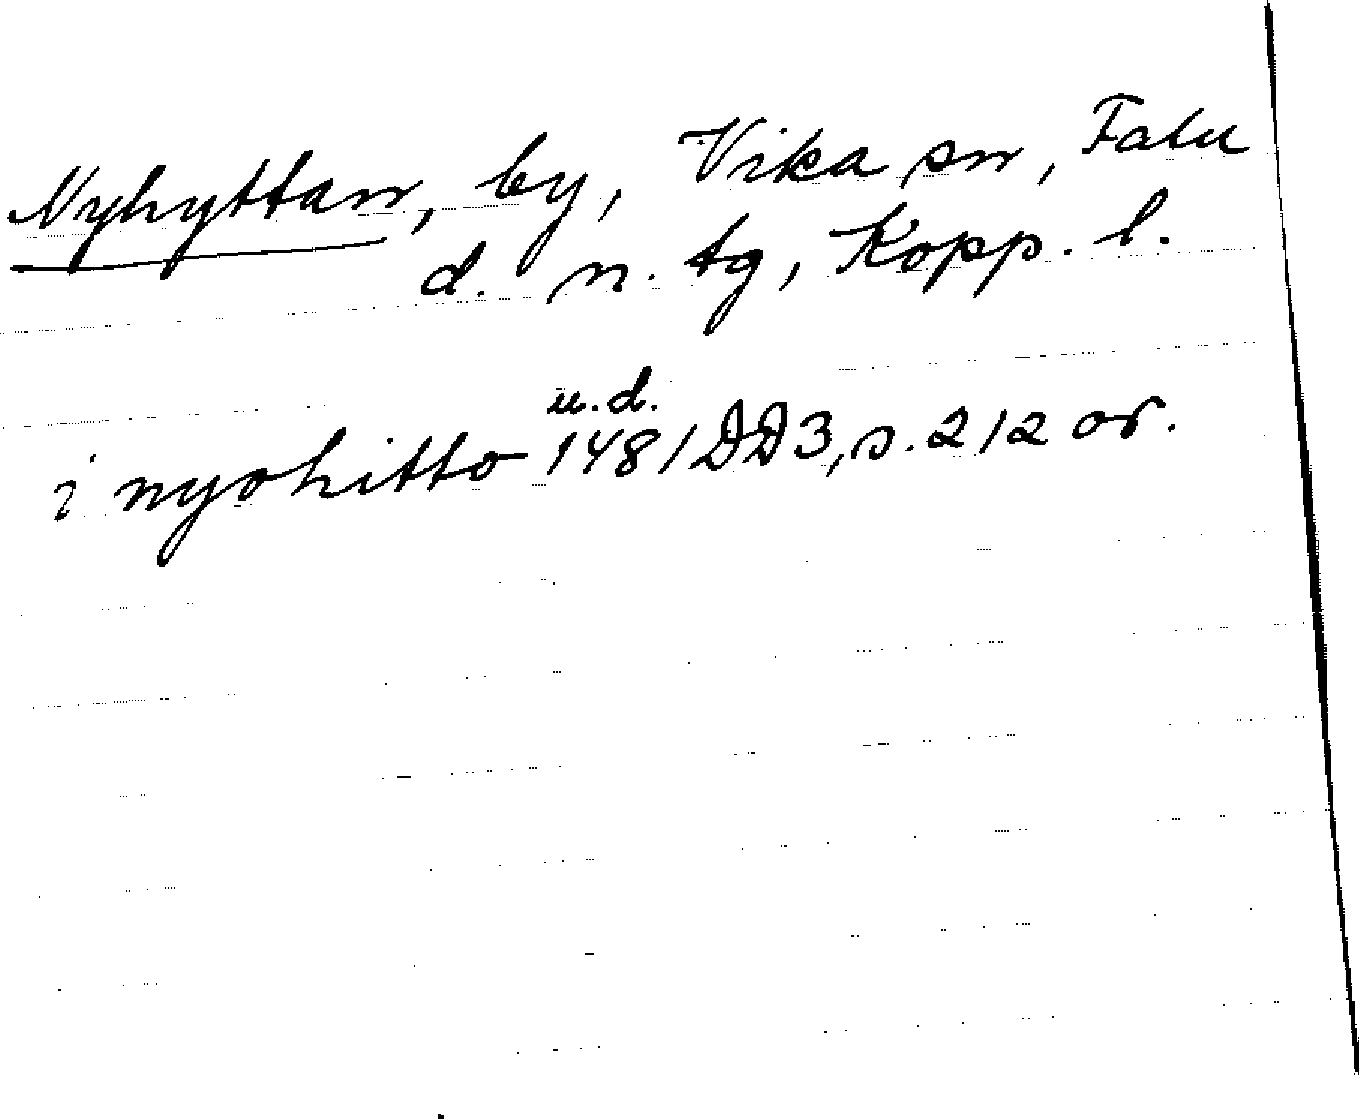 Nyhyttan, by, Vika sn, Falu
d. n. tg, Kopp. l.
u.d.
i nyohitto 148/DD3, s. 212 or.